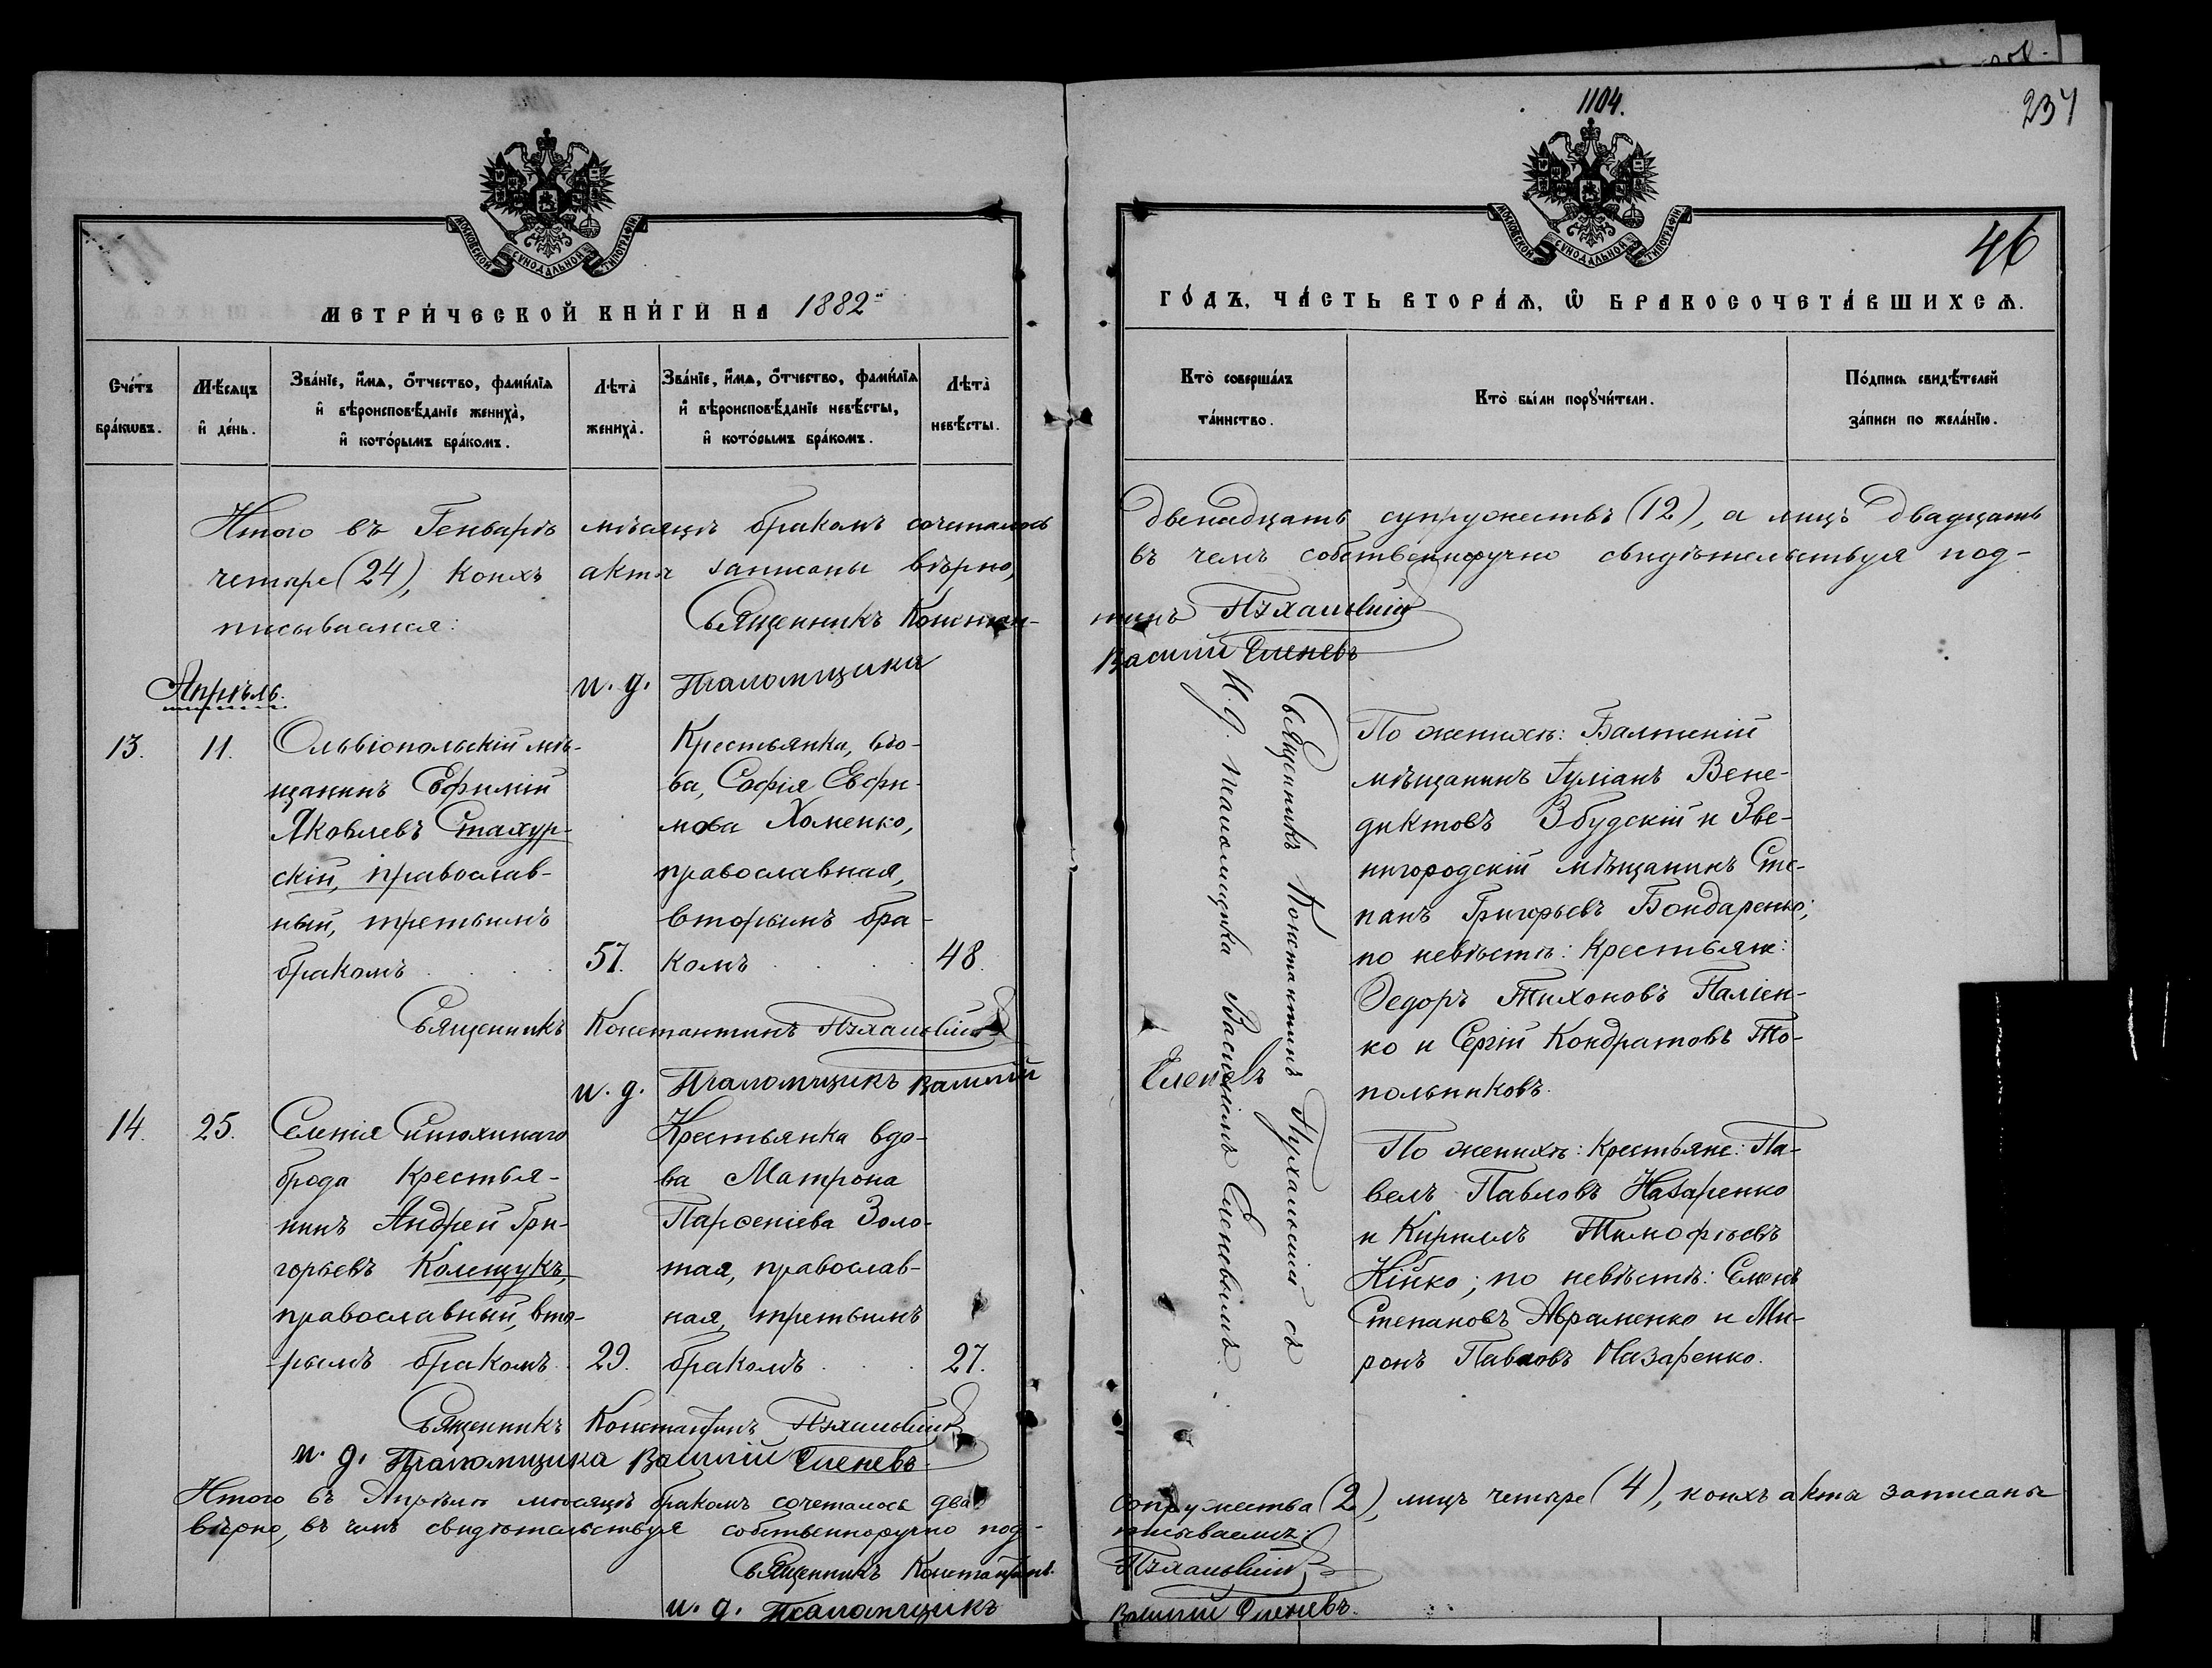 1104.
237
46
МОСКОВСКОЙ СѴНОДАЛЬНОЙ ТИПОГРАФІИ
МОСКОВСКОЙ СѴНОДАЛЬНОЙ ТИПОГРАФІИ
МЕТРИ́ЧЕСКОЙ КНИ́ГИ НА 1882й
ГО́ДЪ, ЧА́СТЬ ВТОРА́Ѧ, Ѿ БРАКОСОЧЕТА́ВШИХСѦ.
Сче́тъ бра́кѡвъ.
Мѣ́сѧцъ и҆ де́нь.
Зва́нїе, и҆́мѧ, ѻ҆́тчество, фами́лїѧ
и҆ вѣроисповѣ́данїе жениха̀,
и҆ кото́рымъ бра́комъ.
Лѣта̀ жениха̀.
Зва́нїе, и҆́мѧ, ѻ҆́тчество, фами́лїѧ
и҆ вѣроисповѣ́данїе невѣ́сты,
и҆ кото́рымъ бра́комъ.
Лѣта̀ невѣ́сты.
Кто̀ соверша́лъ та́инство.
Кто̀ бы́ли порꙋчи́тели.
По́дпись свидѣ́телей
за́писи по жела́нїю.
Итого въ Генварѣ мѣсяцѣ бракомъ сочеталось двенадцать супружествъ (12), а лицъ двадцать
четыре (24), коихъ акты записаны вѣрно, въ чемъ собственноручно свидѣтельствуя под-
писываемся:
Священникъ Констан-
тинъ Пухальскій
и. д. Псаломщика
Василій Еленевъ
Апрѣль.
13.
11.
Ольвіопольскій мѣ-
щанинъ Ефимій
Яковлевъ Стахур-
скій, православ-
ный, третьимъ
бракомъ
57.
Крестьянка, вдо-
ва, Софія Евфи-
мова Хоменко,
православная,
вторымъ бра-
комъ
48.
Священникъ Константинъ Пухальскій съ
И. д. псаломщика Василіемъ Еленевымъ.
По женихѣ: Балтскій
мѣщанинъ Іуліанъ Вене-
диктовъ Збудскій и Зве-
нигородскій мѣщанинъ Сте-
панъ Григорьевъ Бондаренко;
по невѣстѣ: крестьяне:
Ѳедоръ Тихоновъ Паліен-
ко и Сергій Кондратовъ То-
польниковъ.
Священникъ Константинъ Пухальскій
и. д. Псаломщикъ Василій
Еленевъ
14.
25.
Селенія Синюхинаго
брода крестья-
нинъ Андрей Гри-
горьевъ Колещукъ,
православный, вто-
рымъ бракомъ.
29.
Крестьянка вдо-
ва Матрона
Парѳеніева Золо-
тая, православ-
ная, третьимъ
бракомъ
27.
По женихѣ: крестьяне: Па-
велъ Павловъ Назаренко
и Кириллъ Тимофѣевъ
Кійко; по невѣстѣ: Семенъ
Степановъ Авраменко и Ми-
ронъ Павловъ Назаренко.
Священникъ Константинъ Пухальскій
и. д. Псаломщика Василій Еленевъ
Итого въ Апрѣлѣ мѣсяцѣ бракомъ сочеталось два супружества (2), лицъ четыре (4), коихъ акты записаны
вѣрно, въ чемъ свидѣтельствуя собственноручно под-
писываемся:
Священникъ Константинъ
Пухальскій
и. д. Псаломщикъ
Василій Еленевъ.